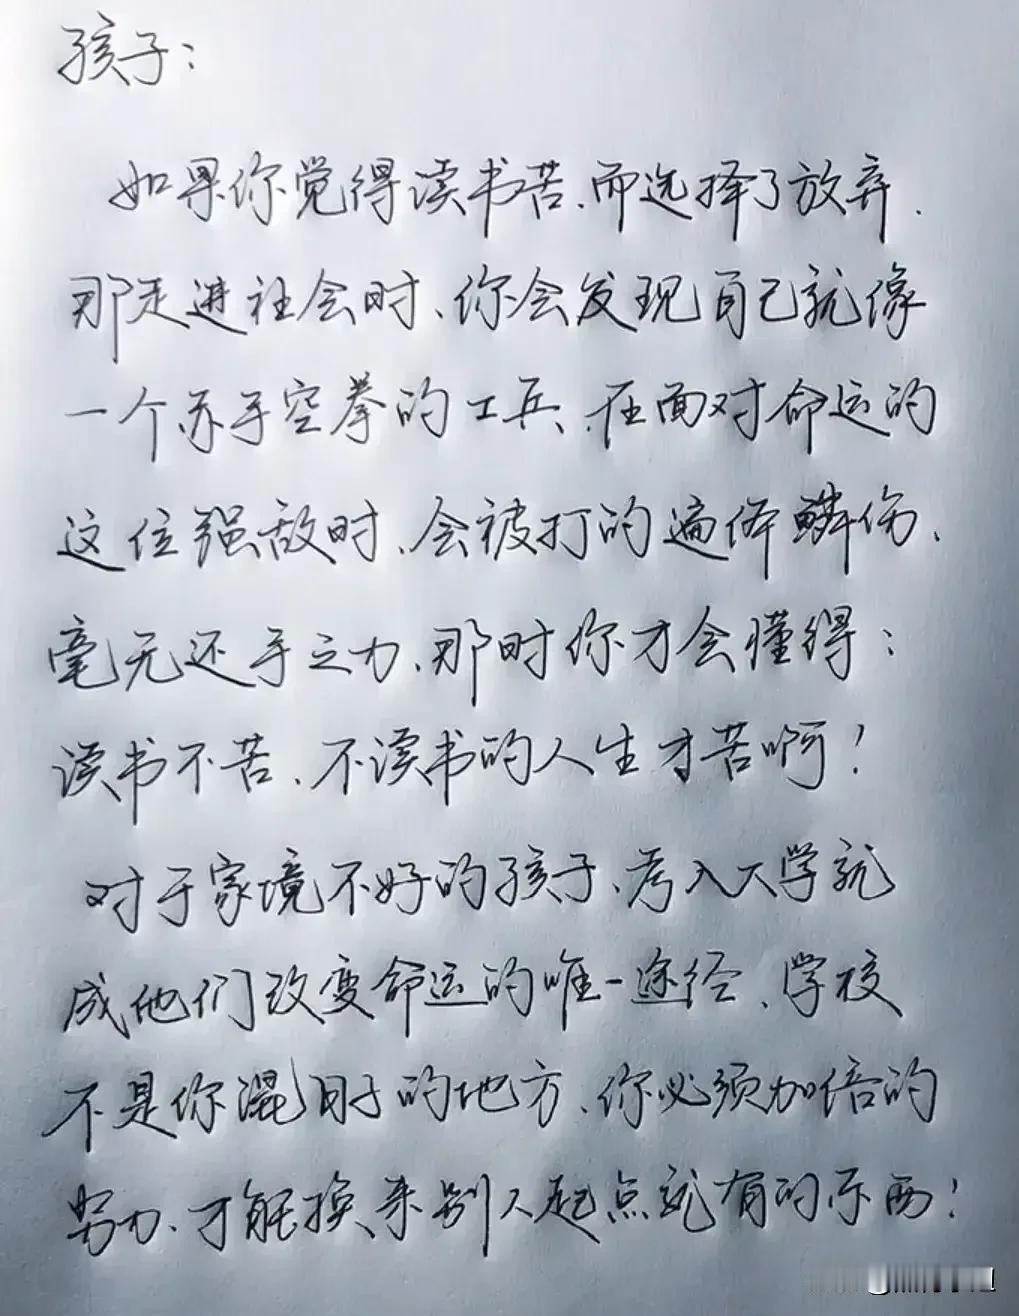 孩子：
如果你觉得读书苦、而选择了放弃、
那走进社会时、你会发现自己就像
一个赤手空拳的工兵、在面对命运的
这位强敌时、会被打的遍体鳞伤、
毫无还手之力、那时你才会懂得：
读书不苦、不读书的人生才苦啊！
对于家境不好的孩子、考入大学就
成他们改变命运的唯一途经、学校
不是你混日子的地方、你必须加倍的
努力、才能换来别人起点就有的东西！